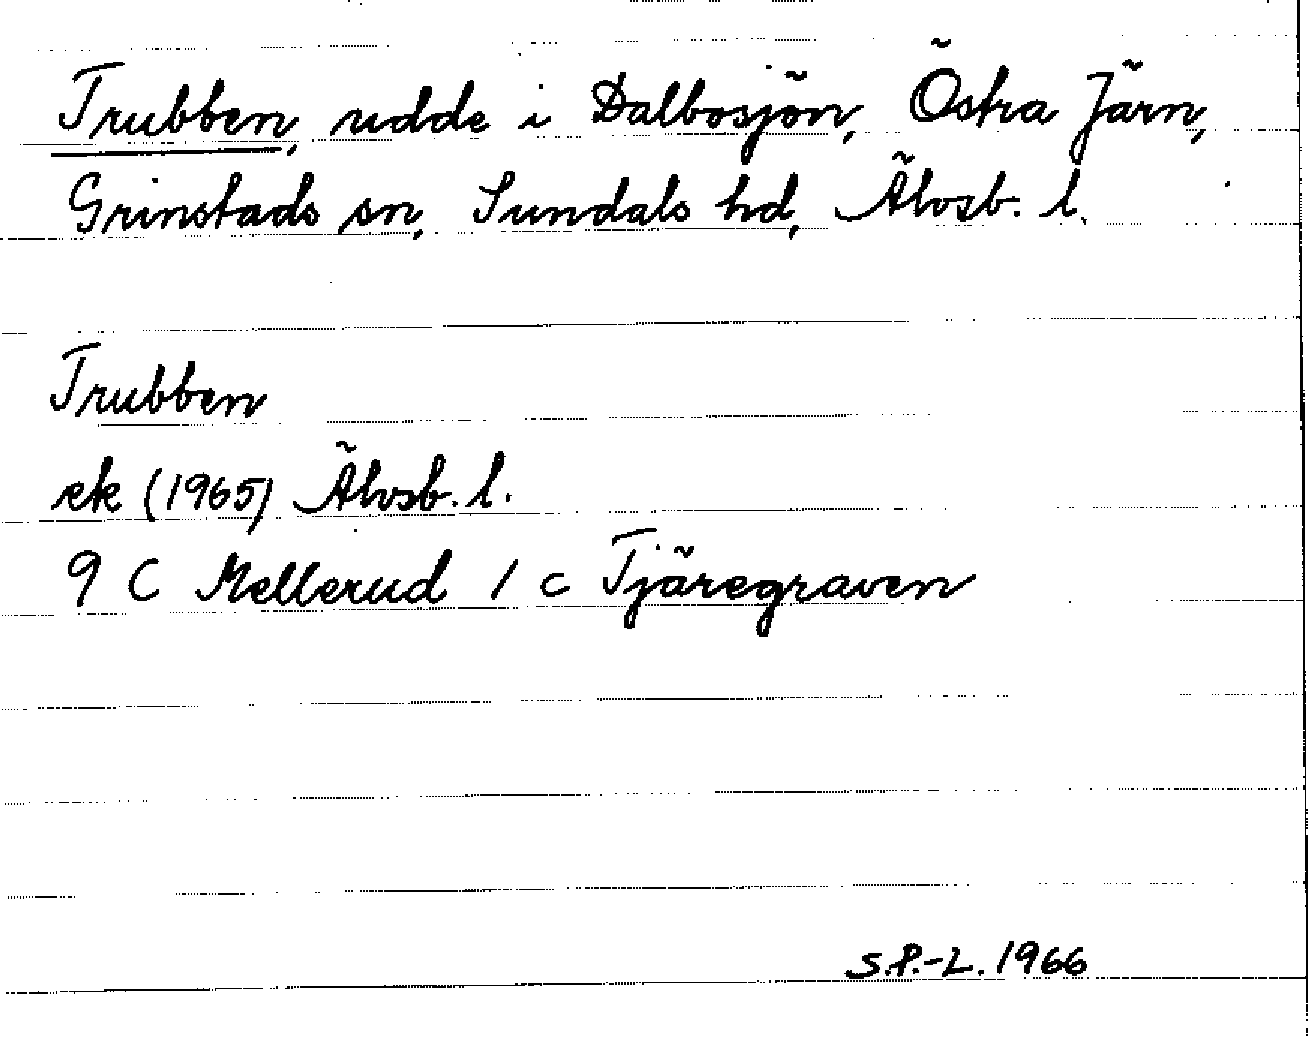 Trubben, udde i Dalbosjön, Östra Järn,
Grinstads sn, Sundals hd, Älvsb. l.
Trubben
ek (1965) Älvsb. l.
9 C Mellerud 1 c Tjäregraven
S.P.-L. 1966